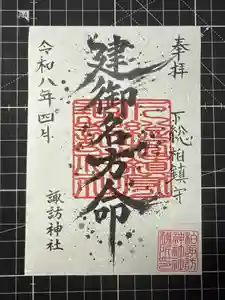 奉拝
下総柏鎮守
建御名方命
令和八年四月
諏訪神社